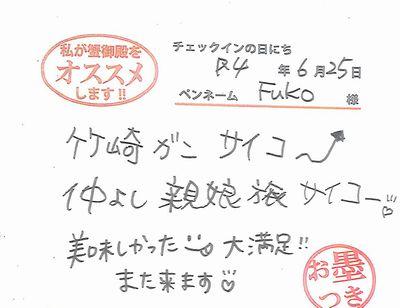 私が蟹御殿を
オススメ
します!!
チェックインの日にち
R4 年 6 月 25 日
ペンネーム Fuko 様
竹崎ガニ サイコー
仲よし 親娘 旅 サイコー
美味しかった 大満足!!
また来ます
お墨
つき